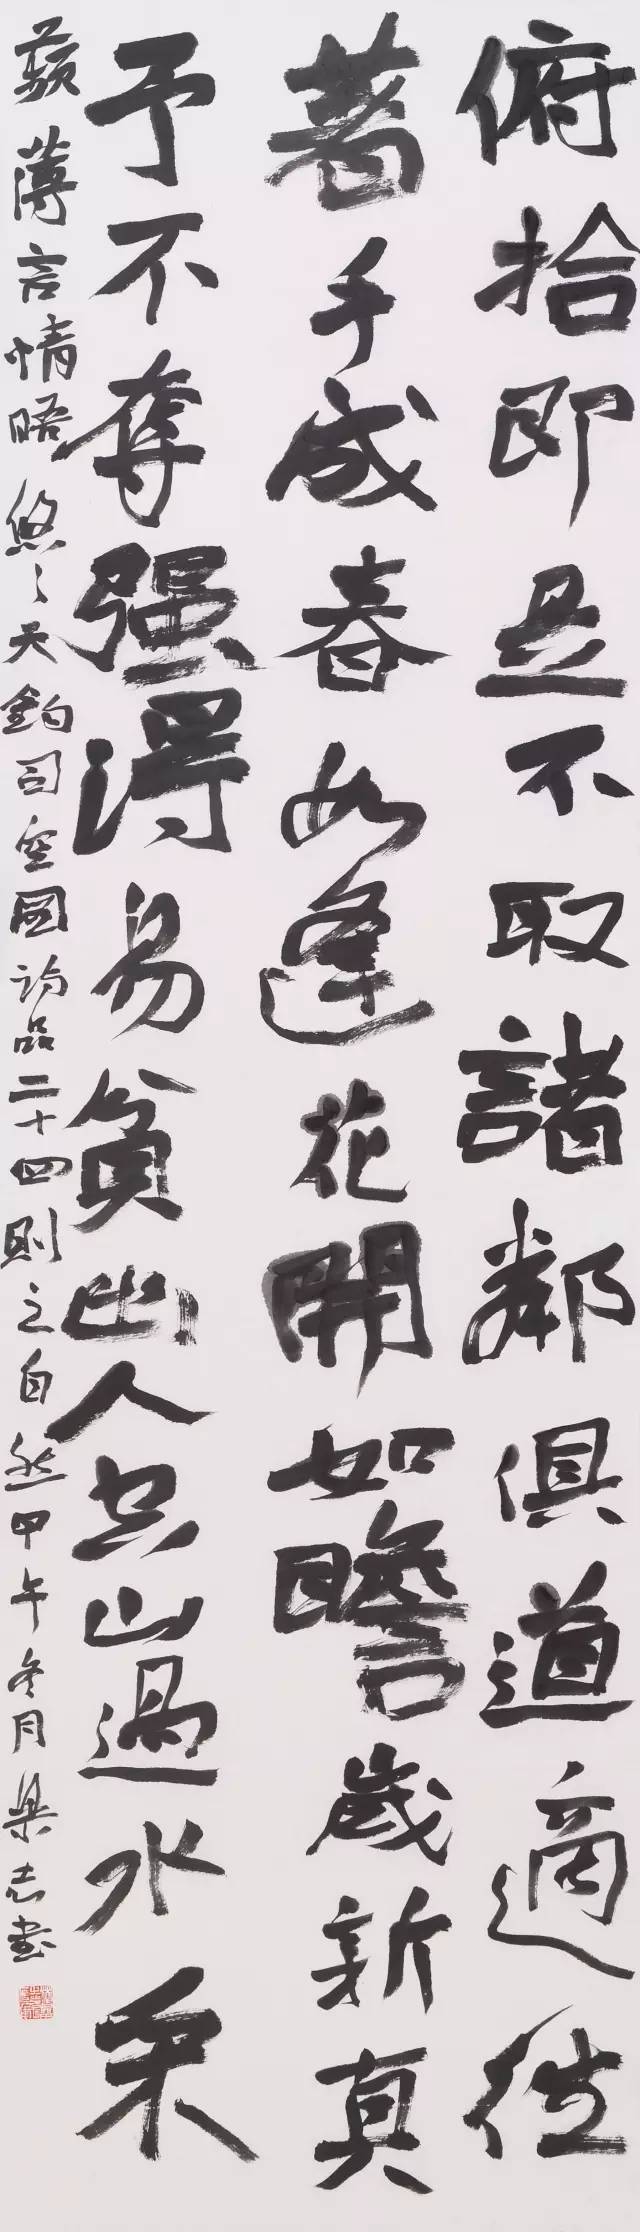 俯拾即是不取諸鄰俱道適往
著手成春如逢花開如瞻歲新真
予不奪强得易貧幽人空山過水采
蘋薄言情晤悠〻天鈞司空圖詩品二十四則之自然甲午冬月梁志書